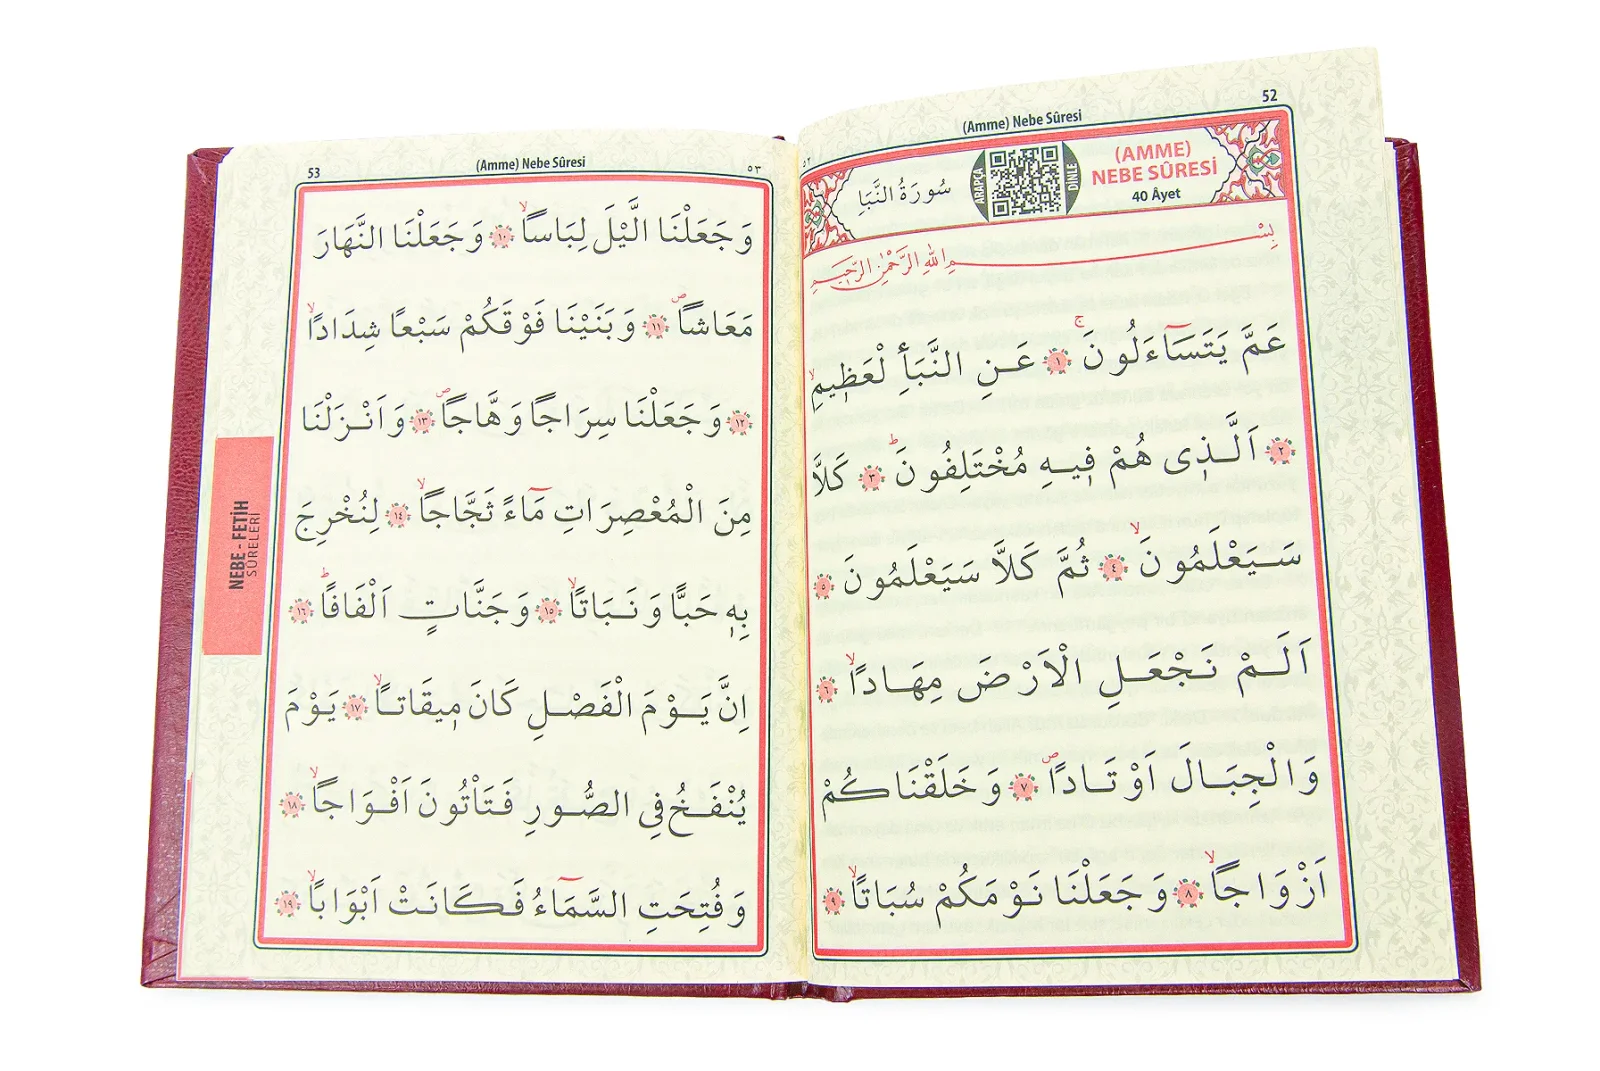 52
(Amme) Nebe Sûresi
٥٢
(AMME)
NEBE SÛRESİ
40 Âyet
ARAPÇA
DİNLE
سُورَةُ النَّبَأِ
بِسْمِ اللهِ الرَّحْمٰنِ الرَّحٖيمِ
عَمَّ يَتَسَٓاءَلُونَۚ ﴿١﴾ عَنِ النَّبَأِ الْعَظٖيمِۙ
﴿٢﴾ اَلَّذٖى هُمْ فٖيهِ مُخْتَلِفُونَؕ ﴿٣﴾ كَلَّا
سَيَعْلَمُونَۙ ﴿٤﴾ ثُمَّ كَلَّا سَيَعْلَمُونَ ﴿٥﴾
اَلَمْ نَجْعَلِ الْاَرْضَ مِهَادًاۙ ﴿٦﴾
وَالْجِبَالَ اَوْتَادًاۖ ﴿٧﴾ وَخَلَقْنَاكُمْ
اَزْوَاجًاۙ ﴿٨﴾ وَجَعَلْنَا نَوْمَكُمْ سُبَاتًاۙ ﴿٩﴾
53
(Amme) Nebe Sûresi
٥٣
وَجَعَلْنَا الَّيْلَ لِبَاسًاۙ ﴿١٠﴾ وَجَعَلْنَا النَّهَارَ
مَعَاشًاۖ ﴿١١﴾ وَبَنَيْنَا فَوْقَكُمْ سَبْعًا شِدَادًاۙ
﴿١٢﴾ وَجَعَلْنَا سِرَاجًا وَهَّاجًاۖ ﴿١٣﴾ وَاَنْزَلْنَا
مِنَ الْمُعْصِرَاتِ مَٓاءً ثَجَّاجًاۙ ﴿١٤﴾ لِنُخْرِجَ
بِهٖ حَبًّا وَنَبَاتًاۙ ﴿١٥﴾ وَجَنَّاتٍ اَلْفَافًاؕ ﴿١٦﴾
اِنَّ يَوْمَ الْفَصْلِ كَانَ مٖيقَاتًاۙ ﴿١٧﴾ يَوْمَ
يُنْفَخُ فِى الصُّورِ فَتَأْتُونَ اَفْوَاجًاۙ ﴿١٨﴾
وَفُتِحَتِ السَّمَٓاءُ فَكَانَتْ اَبْوَابًاۙ ﴿١٩﴾
NEBE - FETİH
SÛRELERİ